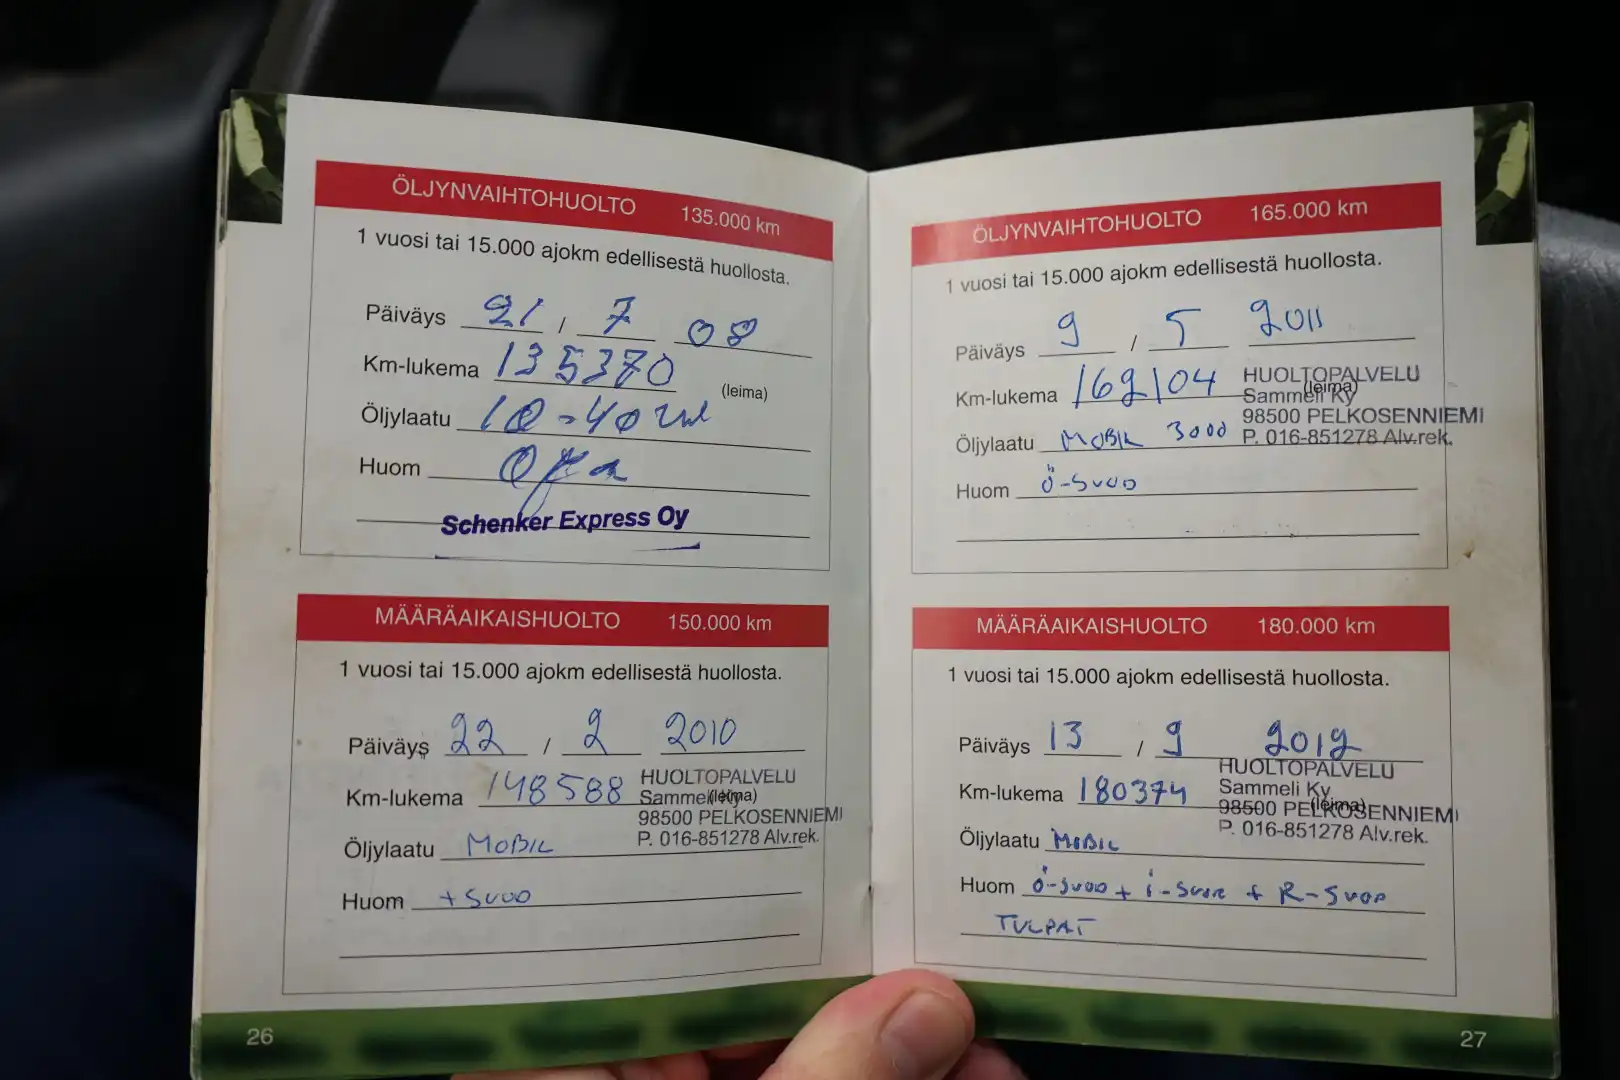 ÖLJYNVAIHTOHUOLTO 135.000 km
1 vuosi tai 15.000 ajokm edellisestä huollosta.
Päiväys 21 / 7 08
Km-lukema 135370
(leima)
Öljylaatu 10-40
Huom
Schenker Express Oy
MÄÄRÄAIKAISHUOLTO 150.000 km
1 vuosi tai 15.000 ajokm edellisestä huollosta.
Päiväys 22 / 2 2010
Km-lukema 148588 HUOLTOPALVELU
Sammeli Ky (leima)
98500 PELKOSENNIEMI
Öljylaatu MOBIL P. 016-851278 Alv.rek.
Huom +SUOD
26
ÖLJYNVAIHTOHUOLTO 165.000 km
1 vuosi tai 15.000 ajokm edellisestä huollosta.
Päiväys 9 / 5 2011
Km-lukema 162104 HUOLTOPALVELU
(leima)
Sammeli Ky
98500 PELKOSENNIEMI
Öljylaatu MOBIL 3000 P. 016-851278 Alv.rek.
Huom Ö-SUOD
MÄÄRÄAIKAISHUOLTO 180.000 km
1 vuosi tai 15.000 ajokm edellisestä huollosta.
Päiväys 13 / 9 2012
HUOLTOPALVELU
Km-lukema 180374 Sammeli Ky
98500 PELKOSENNIEMI (leima)
P. 016-851278 Alv.rek.
Öljylaatu MOBIL
Huom Ö-SUOD + i-SUOD + R-SUOD
TULPAT
27